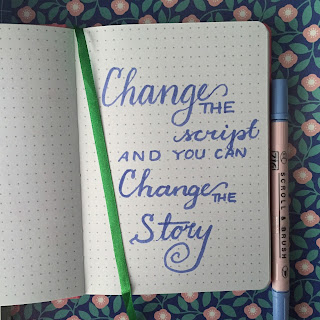 Change
THE
script
AND YOU CAN
Change
THE
Story
SCROLL & BRUSH